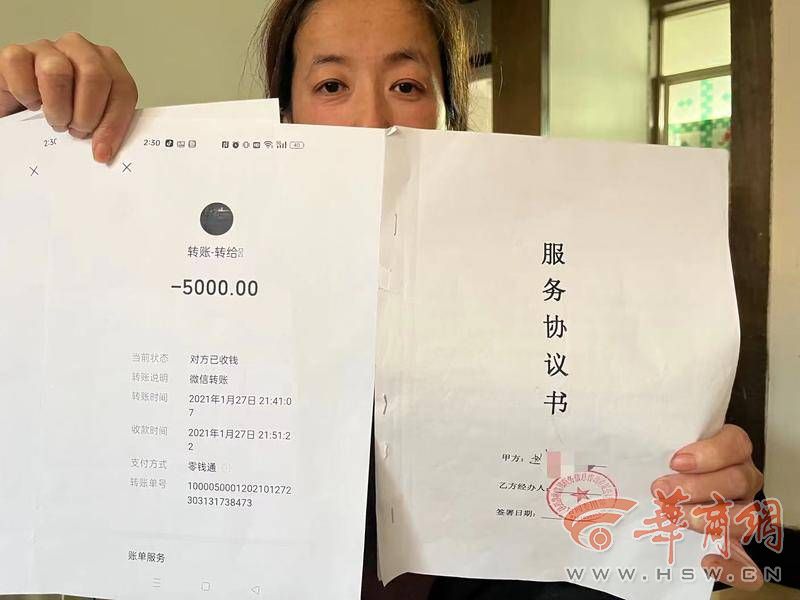 2:30
2:30
转账-转给
-5000.00
当前状态 对方已收钱
转账说明 微信转账
转账时间 2021年1月27日 21:41:0
7
收款时间 2021年1月27日 21:51:2
2
支付方式 零钱通
转账单号 1000050001202101272
303131738473
账单服务
服务协议书
甲方:
乙方经办人:
签署日期:
华商网
WWW.HSW.CN